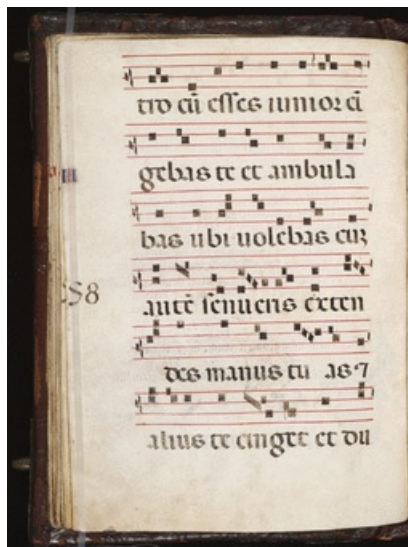 tro cū esses iunior cī
gebas te et ambula
bas ubi uolebas cū
autē senueris exten
des manus tu as ⁊
alius te cinget et du
58